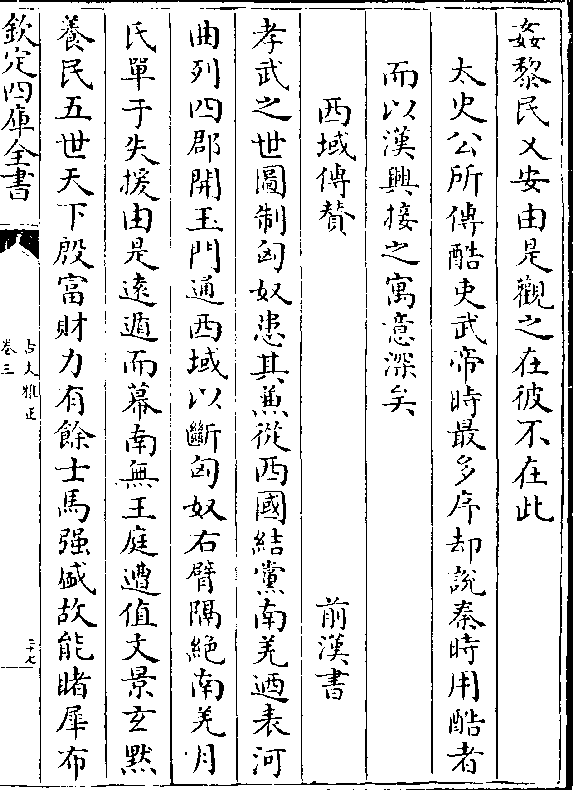 姦黎民乂安由是觀之在彼不在此
太史公所傳酷吏武帝時最多序却說秦時用酷者
而以漢興接之寓意深矣
西域傳贊
前漢書
孝武之世圖制匈奴患其兼從西國結黨南羌迺表河
曲列四郡開玉門通西域以斷匈奴右臂隔絶南羌月
氏單于失援由是逺遁而幕南無王庭遭值文景玄黙
養民五世天下殷富財力有餘士馬强盛故能睹犀布
欽定四庫全書
古文雅正
卷三
三十七